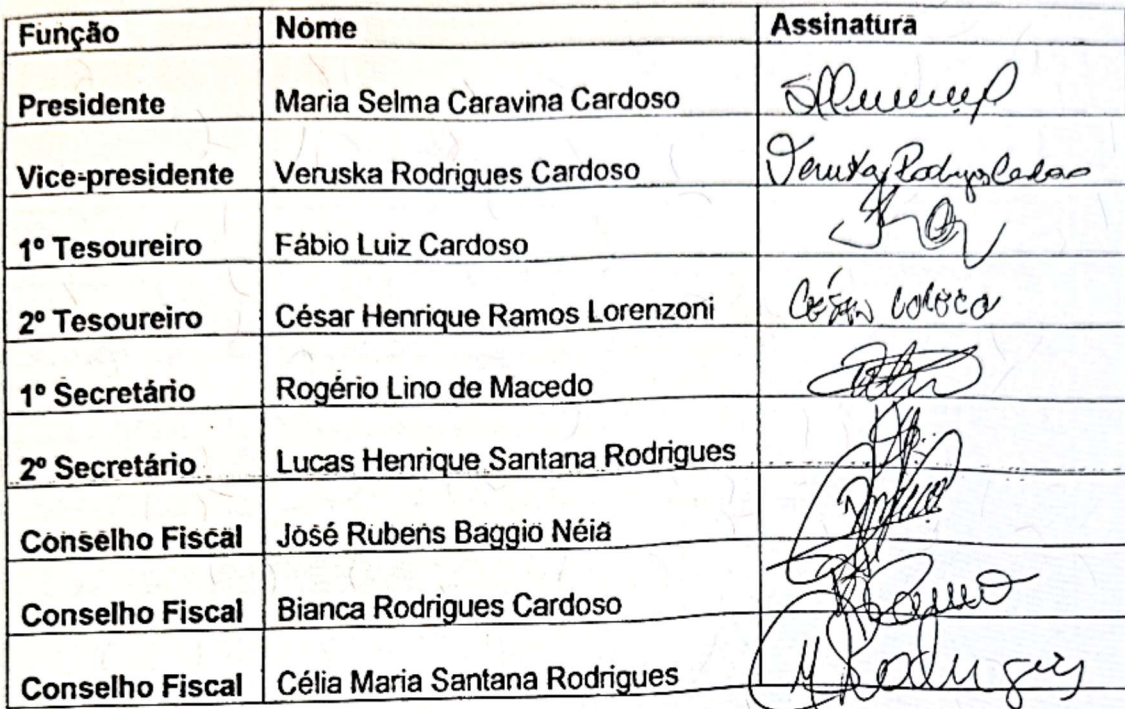 Função Nome Assinatura
Presidente Maria Selma Caravina Cardoso
Vice-presidente Veruska Rodrigues Cardoso Veruska Rodrigues Cardoso
1º Tesoureiro Fábio Luiz Cardoso
2º Tesoureiro César Henrique Ramos Lorenzoni
1º Secretário Rogério Lino de Macedo
2º Secretário Lucas Henrique Santana Rodrigues
Conselho Fiscal José Rubens Baggio Néia
Conselho Fiscal Bianca Rodrigues Cardoso
Conselho Fiscal Célia Maria Santana Rodrigues Rodrigues